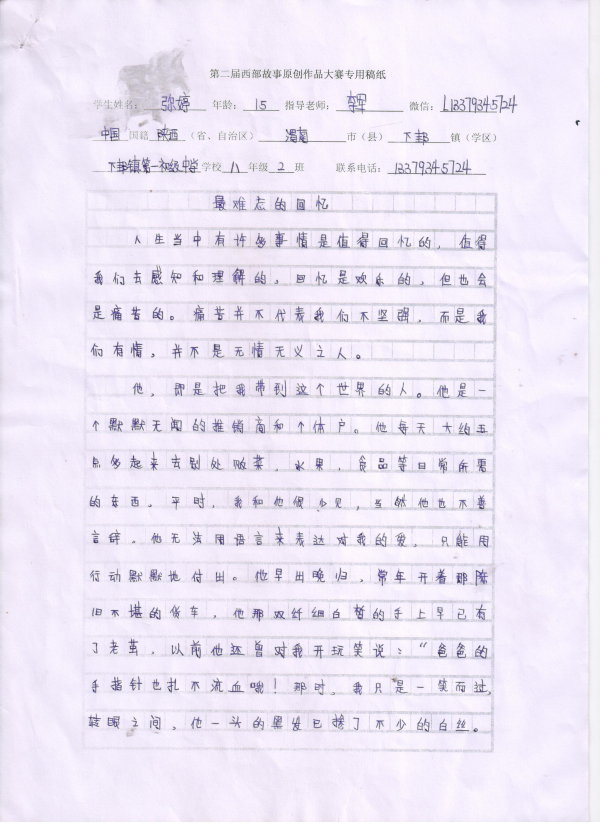 第二届西部故事原创作品大赛专用稿纸
学生姓名: 弥婷 年龄: 15 指导老师: 微信: L13379345724
中国 国籍 陕西 (省、自治区) 渭南 市(县) 下邽 镇(学区)
下邽镇第一初级中学 学校 八 年级 2 班 联系电话: 13379345724
最难忘的回忆
人生当中有许多事情是值得回忆的,值得
我们去感知和理解的,回忆是欢乐的,但也会
是痛苦的。痛苦并不代表我们不坚强,而是我
们有情,并不是无情无义之人。
他,即是把我带到这个世界的人。他是一
个默默无闻的推销商和个体户。他每天大约五
点多起来去别处贩菜,水果,食品等日常所需
的东西。平时,我和他很少见,当然他也不善
言辞。他无法用语言来表达对我的爱,只能用
行动默默地付出。他早出晚归,常年开着那陈
旧不堪的货车,他那双纤细白皙的手上早已有
了老茧,以前他还曾对我开玩笑说:“爸爸的
手指针也扎不流血哦!那时,我只是一笑而过,
转眼之间,他一头的黑发已搀了不少的白丝。